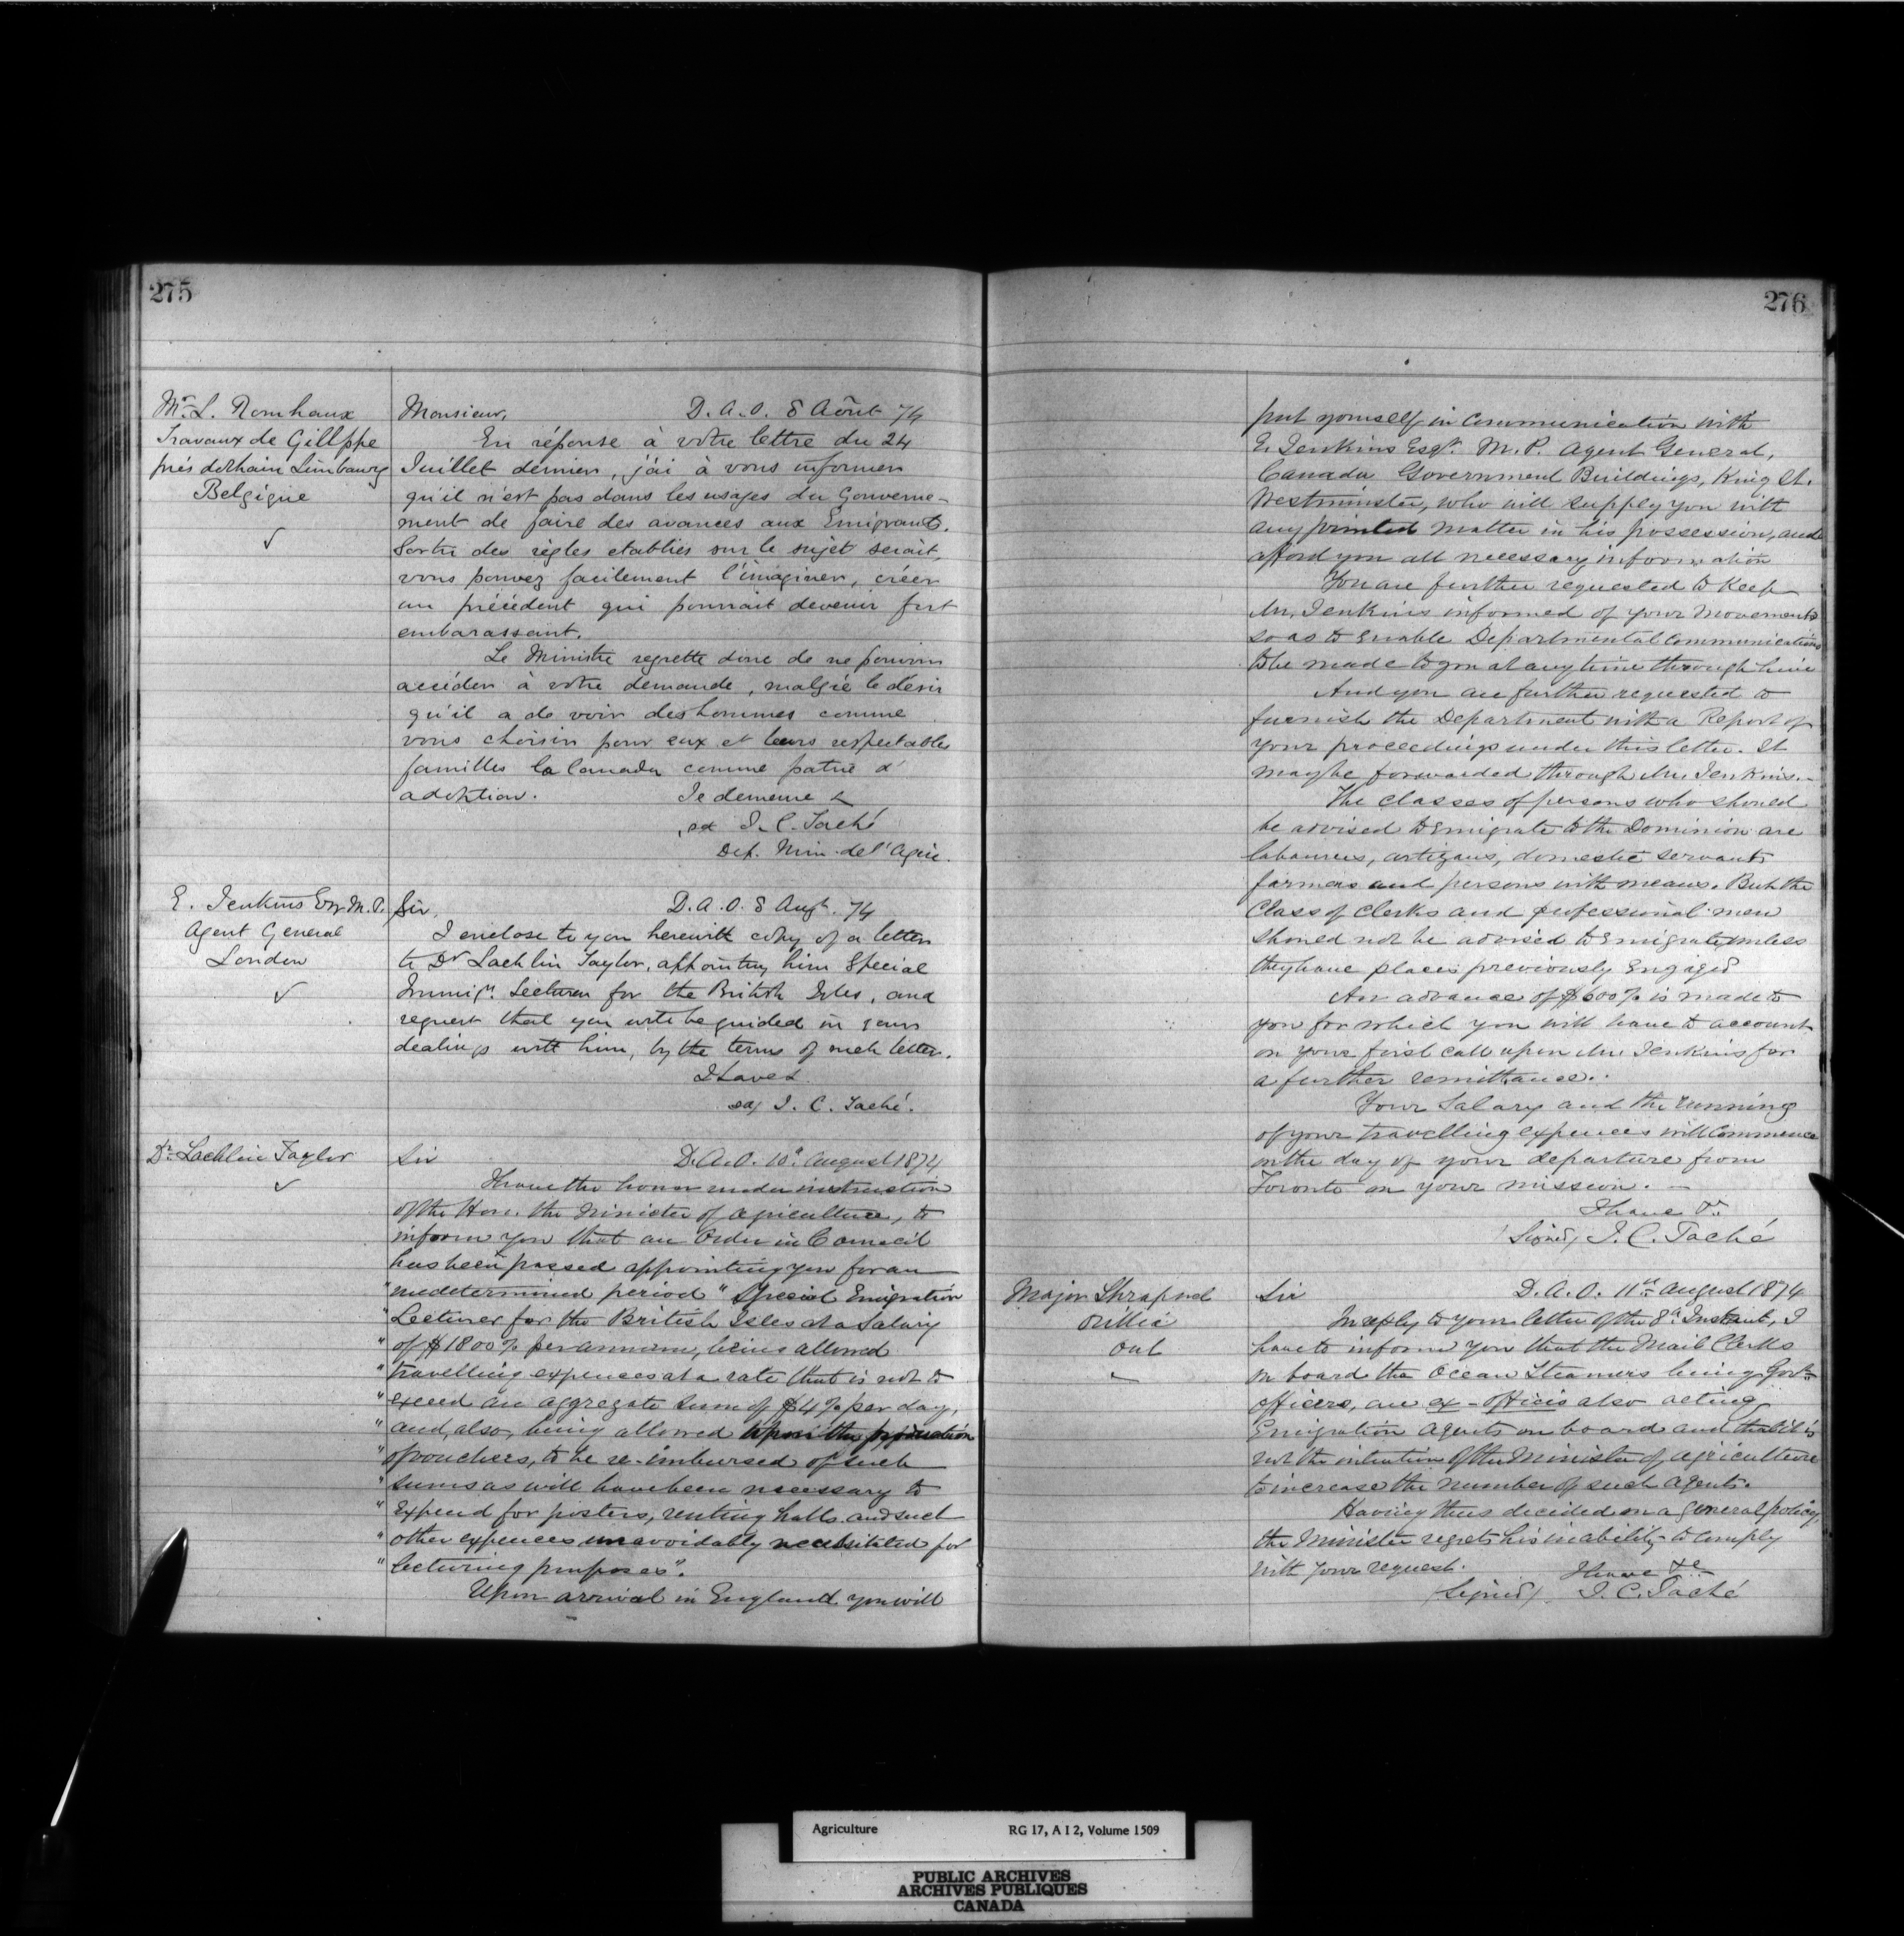 275
Mr. L. Romhaux
Travaux de Gillppe
près dethain Limbourg
Belgique
Monsieur, D. A. O. 8 Aôut 74
En réponse à votre lettre du 24
Juillet dernier, j'ai à vous informer
qu'il n'est pas dans les usages du Gouverne-
ment de faire des avances aux Emigrants.
Sortir des règles etablies sur le sujet serait,
vous pouvez facilement l'imaginer, créer
un précédent qui pourrait devenir fort
embarassant.
Le Ministre regrette donc de ne pouvoir
accéder à votre demande, malgré le désir
qu'il a de voir des hommes comme
vous choisir pour eux et leurs respectables
familles le Canada comme patrie d'
adoktion. Je demeure &
sd J. C. Taché
Dep. Min. de l'Agric.
E. Jenkins Esq M. P.
Agent General
London
Sir, D. A. O. 8 Augt. 74
I enclose to you herewith copy of a letter
to Dr Lachlin Taylor, appointing him Special
Immign. Lecturer for the British Isles, and
request that you will be guided in your
dealings with him, by the terms of such letter.
I have &
sd/ J. C. Taché.
Dr. Lachlin Taylor
Sir D. A. O. 10th August 1874
I have the honor under instruction
of the Hon. the Minister of Agriculture, to
inform you that an Order in Council
has been passed appointing you for an
"undetermined period "Special Emigration
"Lecturer for the British Isles at a Salary
"of $1800 % per annum, being allowed
"travelling expences at a rate that is not to
"exceed an aggregate sum of $4 % per day,
"and, also, being allowed upon the production
"of vouchers, to be re-imbursed of such
"sums as will have been necessary to
"expend for posters, renting halls and such
"other expences unavoidably necessitated for
"lecturing purposes".
Upon arrival in England you will
276
put yourself in communication with
E. Jenkins Esqr. M. P. Agent General,
Canada Government Buildings, King St.
Westminster, who will supply you with
any printed matter in his possession, and
afford you all necessary information
You are further requested to keep
Mr. Jenkins informed of your movements
so as to enable Departmental Communications
to be made to you at any time through him
And you are further requested to
furnish the Department with a Report of
your proceedings under this letter. It
may be forwarded through Mr. Jenkins.-
The classes of persons who should
be advised to emigrate to the Dominion are
labourers, artizans, domestic servants
farmers and persons with means. But the
Class of Clerks and professional men
should not be advised to Emigrate, unless
they have places previously engaged
An advance of $600 % is made to
you for which you will have to account
on your first call upon Mr. Jenkins for
a further remittance.
Your Salary and the running
of your travelling expences will Commence
on the day of your departure from
Toronto on your mission. -
I have &c.
(Signed) J. C. Taché
Major Shrapnel
Orillia
Ont
Sir D. A. O. 11th August 1874
In reply to your letter of the 8th Instant, I
have to inform you that the Mail Clerks
on board the Ocean Steamers being Govt.
officers, are ex-officio also acting
Emigration Agents on board and that it is
not the intention of the Minister of Agriculture
to increase the number of such Agents.
Having thus decided on a general policy,
the Minister regrets his inability to comply
with your request. I have &c
(Signed) J. C. Taché
Agriculture RG 17, A I 2, Volume 1509
PUBLIC ARCHIVES
ARCHIVES PUBLIQUES
CANADA